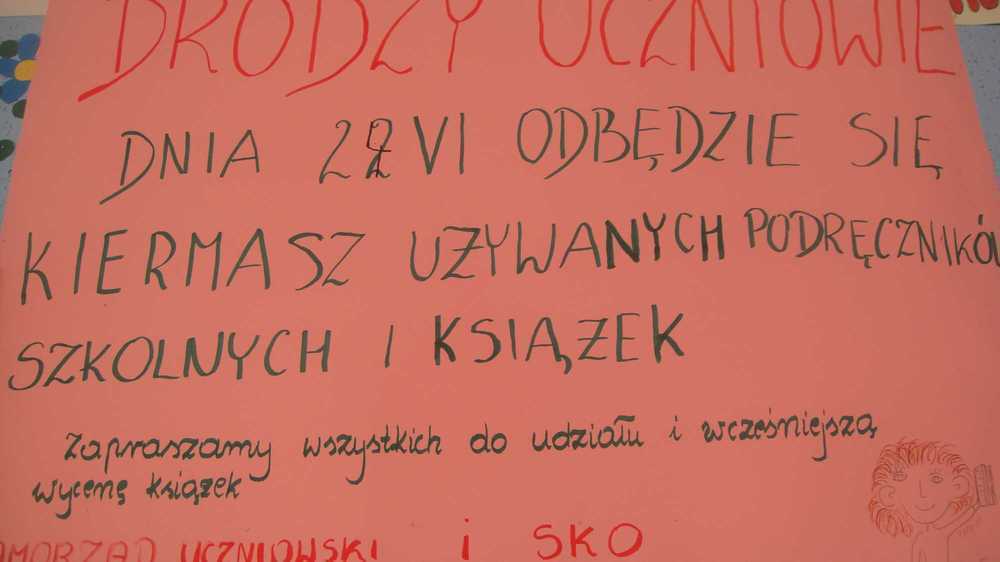 DRODZY UCZNIOWIE
DNIA 22 VI ODBĘDZIE SIĘ
KIERMASZ UŻYWANYCH PODRĘCZNIKÓW
SZKOLNYCH I KSIĄŻEK
Zapraszamy wszystkich do udziału i wcześniejszą
wycenę książek
SAMORZĄD UCZNIOWSKI i SKO